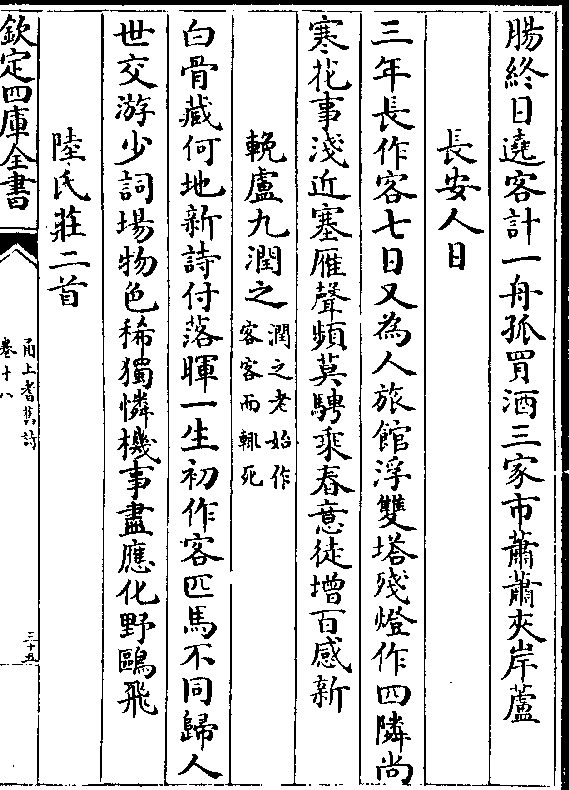 腸終日遶客計一舟孤買酒三家市蕭蕭夾岸蘆
長安人日
三年長作客七日又為人旅館浮雙塔殘燈作四隣尚
寒花事淺近塞雁聲頻莫騁乘春意徒增百感新
輓盧九潤之潤之老始作
客客而輒死
白骨藏何地新詩付落暉一生初作客匹馬不同歸人
世交游少詞場物色稀獨憐機事盡應化野鷗飛
陸氏莊二首
欽定四庫全書
甬上耆舊詩
卷十八
三十五